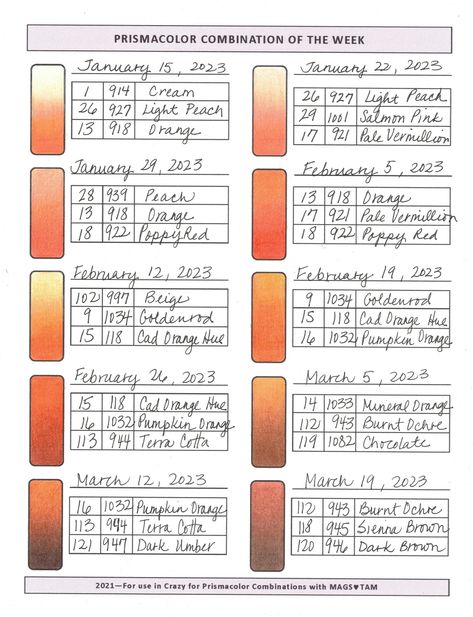 PRISMACOLOR COMBINATION OF THE WEEK
January 15, 2023
1 914 Cream
26 927 Light Peach
13 918 Orange
January 22, 2023
26 927 Light Peach
29 1001 Salmon Pink
17 921 Pale Vermillion
January 29, 2023
28 939 Peach
13 918 Orange
18 922 Poppy Red
February 5, 2023
13 918 Orange
17 921 Pale Vermillion
18 922 Poppy Red
February 12, 2023
102 997 Beige
9 1034 Goldenrod
15 118 Cad Orange Hue
February 19, 2023
9 1034 Goldenrod
15 118 Cad Orange Hue
16 1032 Pumpkin Orange
February 26, 2023
15 118 Cad Orange Hue
16 1032 Pumpkin Orange
113 944 Terra Cotta
March 5, 2023
14 1033 Mineral Orange
112 943 Burnt Ochre
119 1082 Chocolate
March 12, 2023
16 1032 Pumpkin Orange
113 944 Terra Cotta
121 947 Dark Umber
March 19, 2023
112 943 Burnt Ochre
118 945 Sienna Brown
120 946 Dark Brown
2021—For use in Crazy for Prismacolor Combinations with MAGS♥TAM